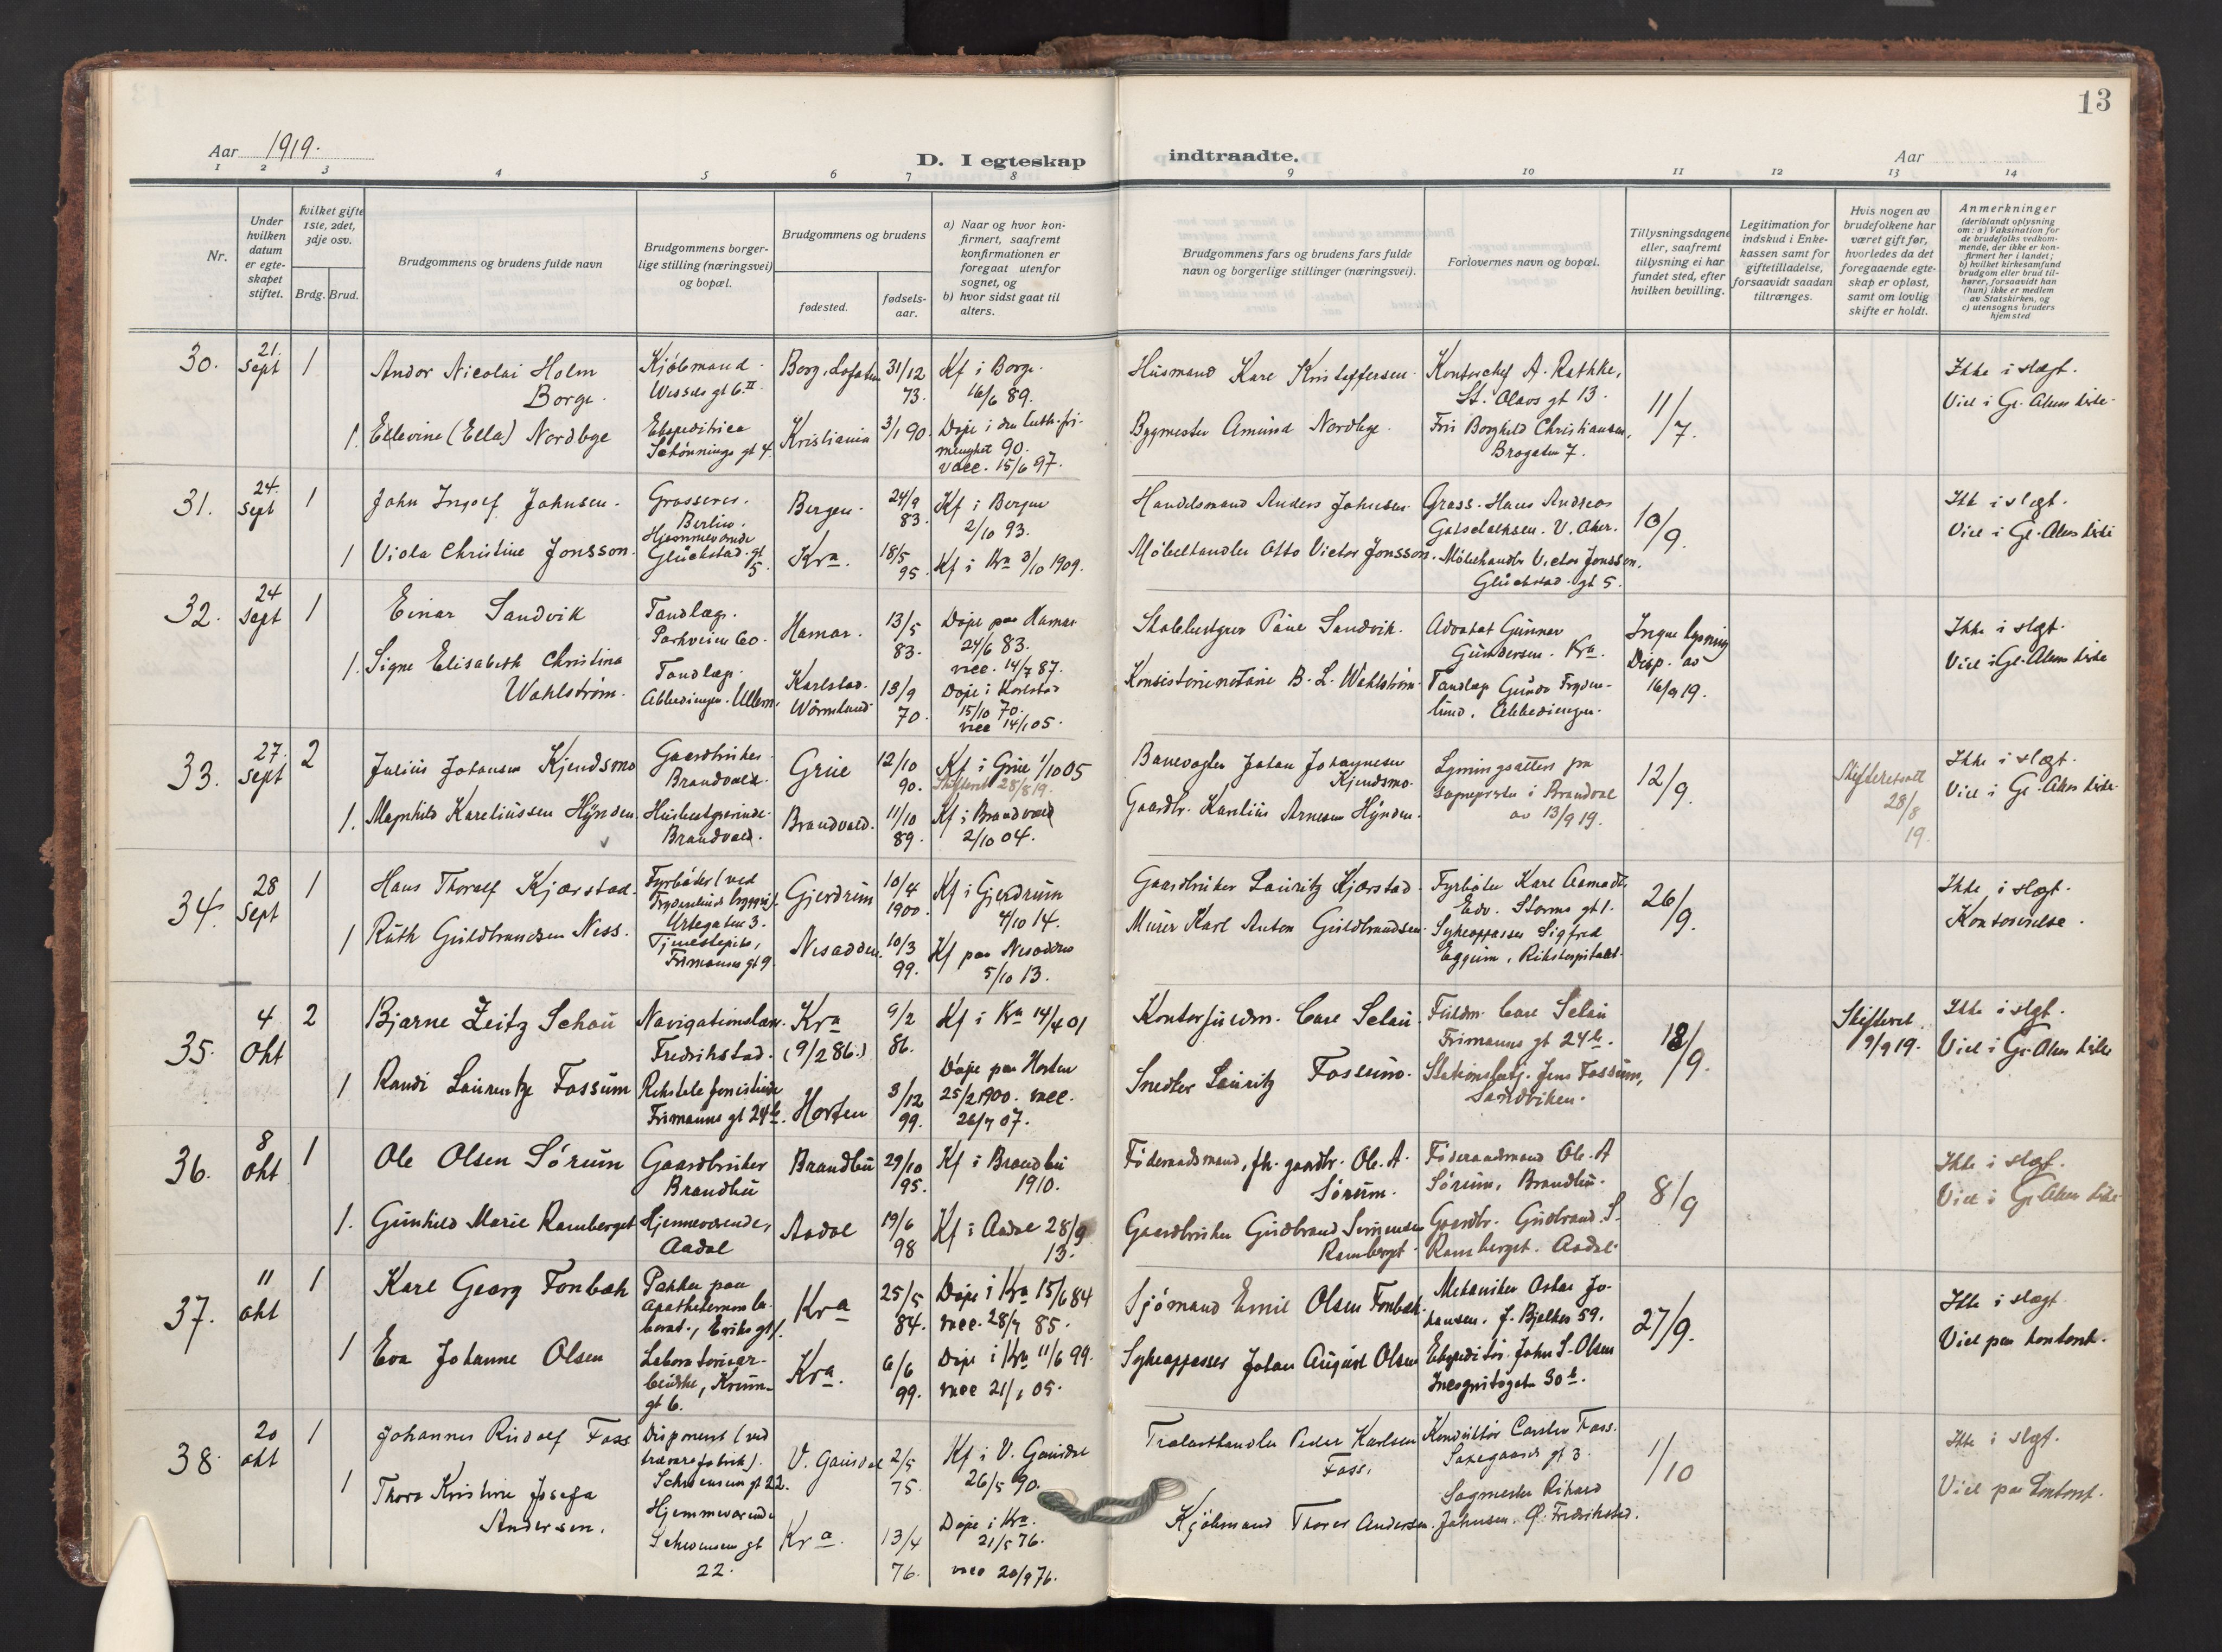 13
Aar 1919.
D. I egteskap
indtraadte.
Aar
1 2 3 4 5 6 7 8 9 10 11 12 13 14
Nr.
Under
hvilken
datum
er egte-
skapet
stiftet.
hvilket gifte
1ste, 2det,
3dje osv.
Brdg. Brud.
Brudgommens og brudens fulde navn
Brudgommens borger-
lige stilling (næringsvei)
og bopæl.
Brudgommens og brudens
fødested.
fødsels-
aar.
a) Naar og hvor kon-
firmert, saafremt
konfirmationen er
foregaat utenfor
sognet, og
b) hvor sidst gaat til
alters.
Brudgommens fars og brudens fars fulde
navn og borgerlige stillinger (næringsvei).
Forlovernes navn og bopæl.
Tillysningsdagene
eller, saafremt
tillysning ei har
fundet sted, efter
hvilken bevilling.
Legitimation for
indskud i Enke-
kassen samt for
giftetilladelse,
forsaavidt saadan
tiltrænges.
Hvis nogen av
brudefolkene har
været gift før,
hvorledes da det
foregaaende egte-
skap er opløst,
samt om lovlig
skifte er holdt.
Anmerkninger
(deriblandt oplysning
om: a) Vaksination for
de brudefolks vedkom-
mende, der ikke er kon-
firmert her i landet;
b) hvilket kirkesamfund
brudgom eller brud til-
hører, forsaavidt han
(hun) ikke er medlem
av Statskirken, og
c) utensogns bruders
hjemsted
30.
21.
Sept
1
Andor Nicolai Holm
Borge.
Kjøbmand.
Wessels gt 6 II
Borg, Lofoten
31/12
73.
Kf i Borge.
16/6 89.
Husmand Kare Kristoffersen.
Kontorchef A. Rathke,
St. Olavs gt 13.
11/7.
Ikke i slegt.
Viet i Gl. Akers kirke.
1. Ellevine (Ella) Nordbye
Ekspeditrice
Schønnings gt 4.
Kristiania
3/1 90.
Døpt i den luth. fri-
menighet 90.
vacc. 15/6 97.
Bygmester Amund Nordbye.
Frk Borghild Christiansen,
Brogaten 7.
31.
24.
Sept
1
John Ingolf Johnsen.
Grosserer.
Berlin.
Bergen.
24/9
83.
Kf i Bergen
2/10 93.
Handelsmand Anders Johnsen.
Gross. Hans Andreas
V. Aker.
10/9.
Ikke i slegt.
Viet i Gl. Akers kirke
1 Viola Christine Jonsson.
Hjemmeværende
Glückstad. gt
5.
Kra.
18/5
95.
Kf i Kra 3/10 1909.
Møbelhandler Otto Victor Jonsson.
Møbelhandler Victor Jonsson.
Glückstad. gt 5.
32.
24
Sept
1
Einar Sandvik
Tandlæge.
Parkveien 60.
Hamar.
13/5
83.
Døpt paa Hamar
24/6 83.
vacc. 14/7 87.
Skolebestyrer Paul Sandvik.
Advokat Gunnar
Gundersen. Kra.
Ingen lysning
Disp. av
16/9 19.
Ikke i slegt.
Viet i Gl. Akers kirke
1. Signe Elisabeth Christina
Wahlstrøm.
Tandlæge.
Abbedingen. Ullern.
Karlstad.
Wärmland
13/9
70.
Døpt i Karlstad
15/10 70.
vacc 14/1 05.
Konsistorienotarie B. L. Wahlstrøm.
Tandlæge Gudo Fryden-
lund. Abbedingen.
33.
27.
Sept
2
Julius Johansen Kjendsmo
Gaardbruker
Brandvold.
Grue
12/10
90.
Kf i Grue 1/10 05
Skifteret 28/8 19.
Banevogter Johan Johannesen
Kjendsmo.
Lysningsattest fra
sogneprest i Brandval
av 13/9 19.
12/9.
Skifteretsatt
28/8
19.
Ikke i slegt.
Viet i Gl. Akers kirke
1. Magnhild Kareliussen Hynden
Husbestyrerinde.
Brandvold.
Brandvold.
11/10
89.
Kf i Brandvold
2/10 04.
Gaardbr. Karelius Arnesen Hynden.
34.
28
Sept
1
Hans Thoralf Kjærstad.
Fyrbøter (ved
Frydenlunds bryggeri).
Urtegaten 3.
Gjerdrum
10/4
1900.
Kf i Gjerdrum
4/10 14.
Gaardbruker Lauritz Kjærstad.
Fyrbøter Karl Aamodt,
Edv. Storms gt 1.
26/9.
Ikke i slegt.
Kontorvielse.
1 Ruth Guldbrandsen Ness.
Tjenestepike,
Frimanns gt 9.
Nesodden.
10/3
99.
Kf paa Nesodden
5/10 13.
Murer Karl Anton Guldbrandsen.
Sykepasser Sigfred
Eggum, Rikshospitalet.
35.
4
Okt
2
Bjarne Zeitz Schau
Navigationslær.
Fredrikstad.
Kra
(9/2 86.)
9/2
86.
Kf i Kra 14/4 01
Kontorfuldm. Carl Schau
Fuldm. Carl Schau
Frimanns gt 24 b.
18/9.
Skifteret.
9/9 19.
Ikke i slegt.
Viet i Gl. Akers kirke
1 Randi Laurentze Fossum
Rikstelefonistinde
Frimanns gt 24 b.
Horten
3/12
99.
Døpt paa Horten
25/2 1900. vacc.
26/7 07.
Snedker Lauritz Fossum.
Stationsbetj. Jens Fossum,
Sandviken.
36.
8
okt
1
Ole Olsen Sørum
Gaardbruker
Brandbu
Brandbu
29/10
95.
Kf i Brandbu
1910.
Føderaadsmand, fh. gaardbr. Ole A.
Sørum.
Føderaadsmand Ole A
Sørum, Brandbu.
8/9
Ikke i slegt.
Viet i Gl. Akers kirke
1. Gunhild Marie Ramberget
Hjemmeværende,
Aadal
Aadal
19/6
98
Kf i Aadal 28/9
13.
Gaardbruker Gudbrand Sørensen
Ramberget.
Gaardbr. Gudbrand S.
Ramberget. Aadal.
37.
11
okt
1
Karl Georg Fonbæk
Pakker paa
apothekernes la-
borat., Eriks gt 1.
Kra
25/5
84.
Døpt i Kra 15/6 84
vacc. 28/7 85.
Sjømand Emil Olsen Fonbæk.
Mekaniker Oskar Jo-
hansen. J. Bjelkes 59.
27/9.
Ikke i slegt
Viet paa kontoret.
1 Eva Johanne Olsen
Laboratoriear-
beiderske, Krum-
gt 6.
Kra.
6/6
99.
Døpt i Kra 11/6 99.
vacc 21/1 05.
Sykepasser Johan August Olsen
Ekspeditør John S. Olsen
Incognitogt 30 b.
38.
20
okt
1
Johannes Rudolf Foss
Disponent (ved
trævarefabrik).
Schwensens gt 22.
V. Gausdal
2/5
75.
Kf i V. Gausdal
26/5 90.
Trælasthandler Peder Karlsen
Foss.
Konduktør Carsten Foss.
Saxegaards gt 3.
1/10
Ikke i slegt.
Viet paa kontoret.
1 Thora Kristine Josefa
Andersen.
Hjemmeværende
Schwensens gt
22.
Kra.
13/4
76.
Døpt i Kra.
21/5 76.
vacc 20/9 76.
Kjøbmand Thorer Andersen.
Sagmester Rikard
Johnsen. Ø. Fredrikstad.